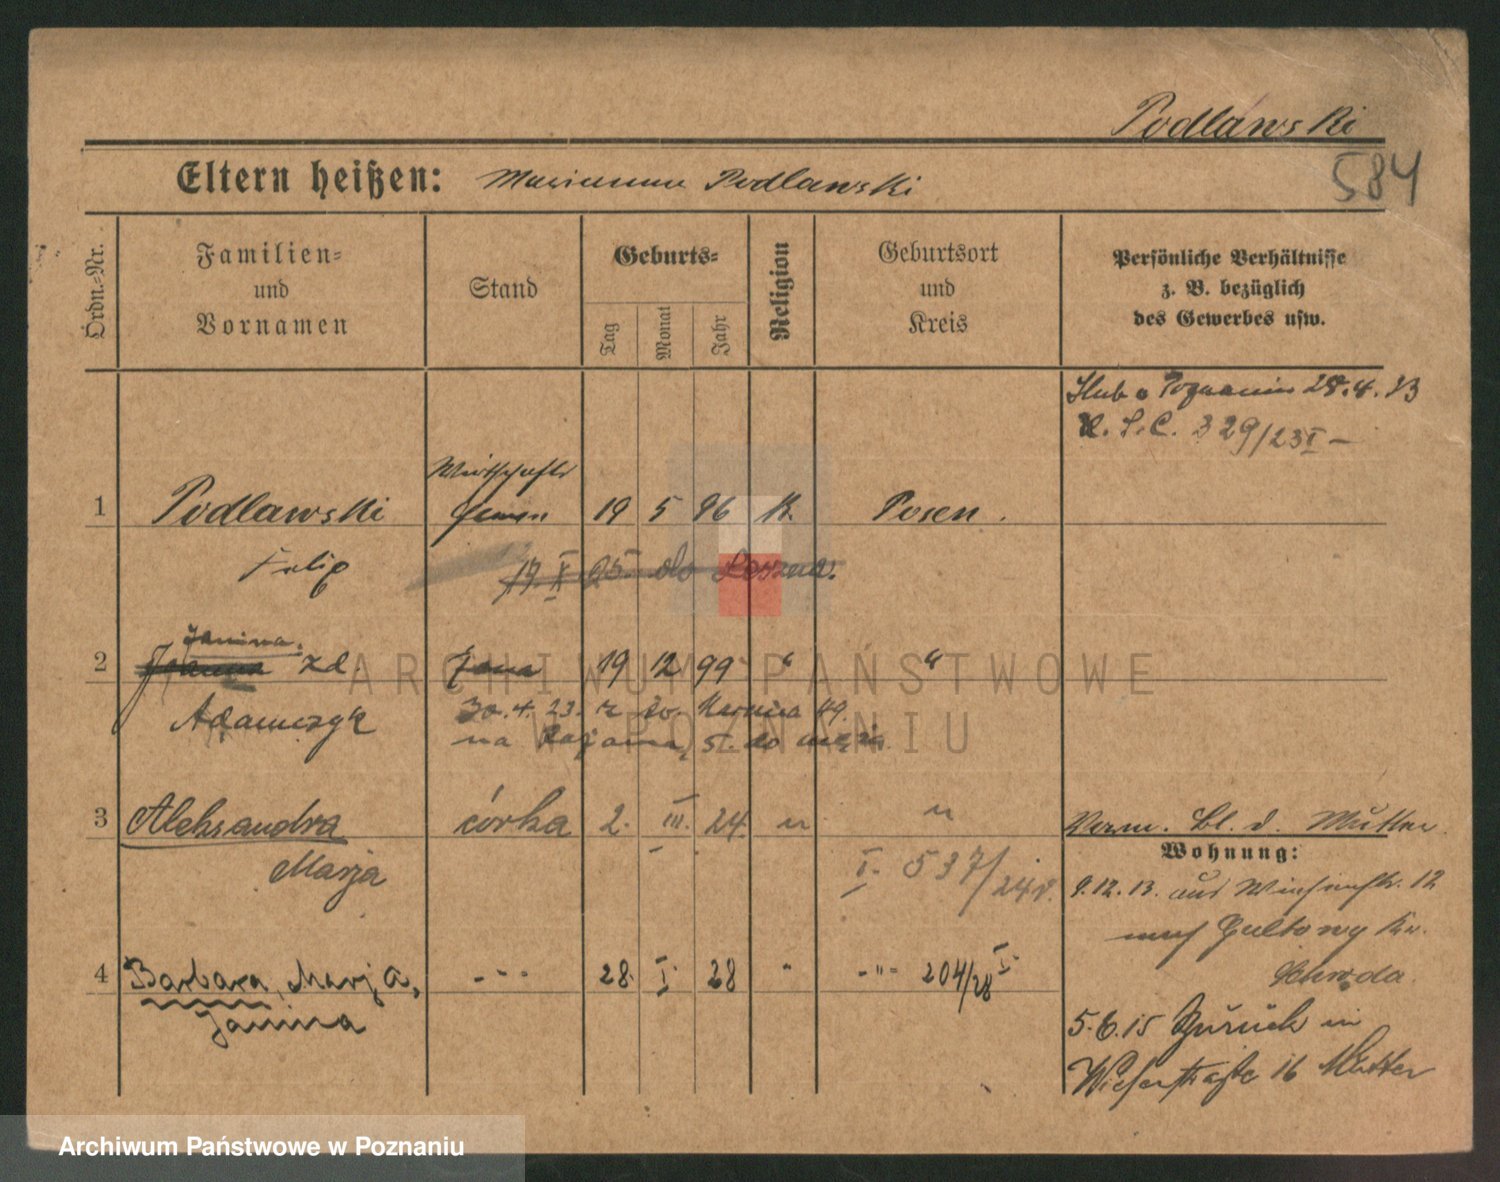 Podlawski
584
Eltern heißen: Marianna Podlawski
Ordn.-Nr.
Familien-
und
Vornamen
Stand
Geburts-
Tag
Monat
Jahr
Religion
Geburtsort
und
Kreis
Persönliche Verhältnisse
z. B. bezüglich
des Gewerbes usw.
Ślub o Poznaniu 28.4.23
U.S.C. 329/23 I –
Wirtschafts
1 Podlawski 19 5 96 K. Posen.
Felip
17. X 25. do Leszna.
Janina
2 zd Jana 19 12 99 " "
Adamczyk
30.4.23. z św. Marcina 49.
na 5. do męża
3 Aleksandra córka 2. III. 24. " "
Marja
I. 537/24
Verm. Bl. d. Mutter
Wohnung:
9.12.13. aus 12
nach Gultowy Kr.
Schroda
4 Barbara, Marja, - " - 28. I. 28 " - " - 204/28 I.
Janina
5.6.15 Zurück in
16 Mutter
ARCHIWUM PAŃSTWOWE
W POZNANIU
Archiwum Państwowe w Poznaniu